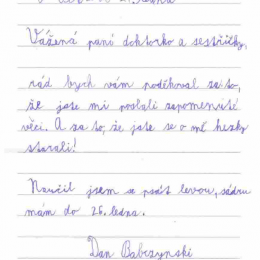 Vážená paní doktorko a sestřičky,
rád bych vám poděkoval za to,
že jste mi poslali zapomenuté
věci. A za to, že jste se o mě hezky
starali!
Naučil jsem se psát levou, sádru
mám do 26. ledna.
Dan Babczynski